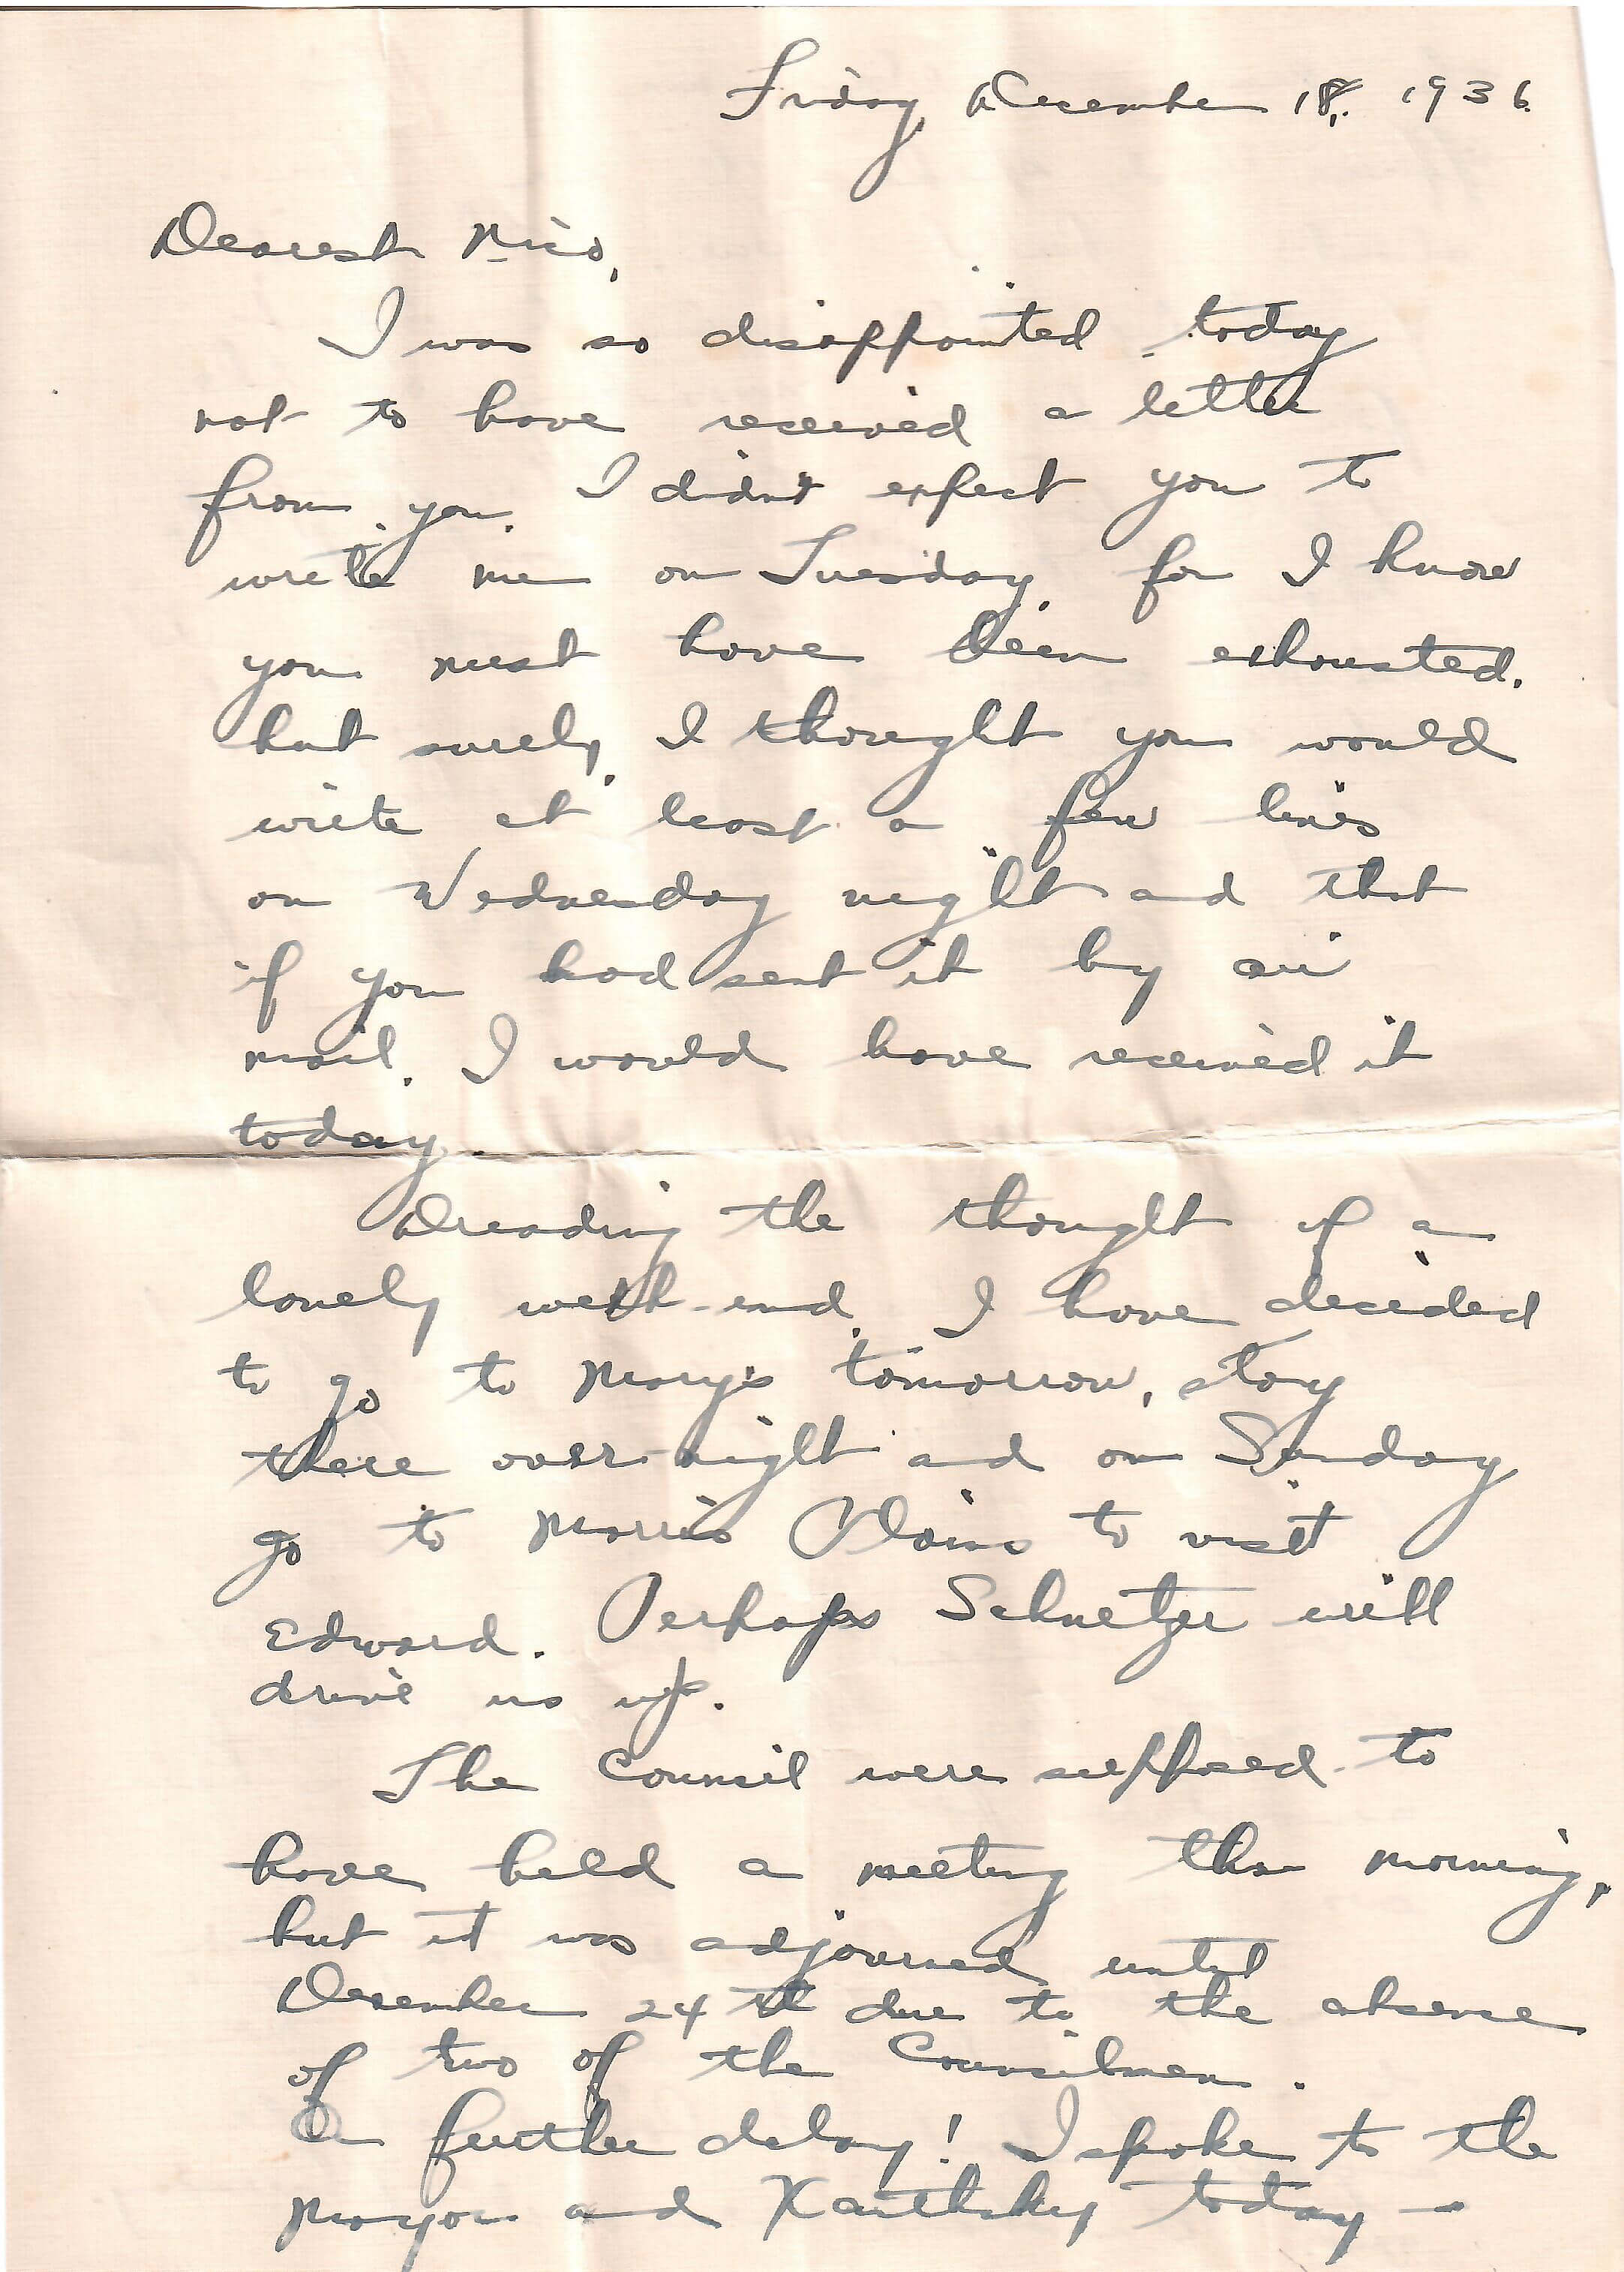 Friday, December 18, 1936.
Dearest Mico,
I was so disappointed today
not to have received a letter
from you. I didn't expect you to
write me on Tuesday, for I know
you must have been exhausted,
but surely, I thought you would
write at least a few lines
on Wednesday night and that
if you had sent it by air
mail, I would have received it
today.
Dreading the thought of a
lonely week-end, I have decided
to go to Mary's tomorrow, stay
there over-night and on Sunday
go to Morris Plains to visit
Edward. Perhaps Schuetzer will
drive us up.
The Council were supposed to
have held a meeting this morning,
but it was adjourned until
December 24th due to the absence
of two of the Councilmen.
On further delay! I spoke to the
Mayor and today —